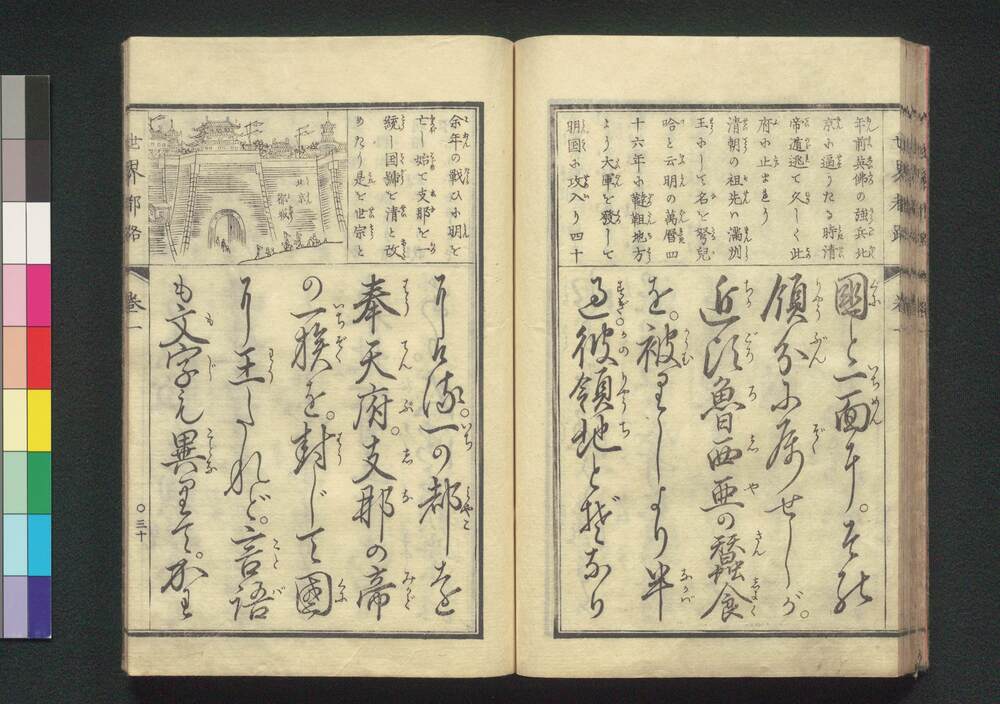 年前英佛の強兵北
京に逼りたる時清
帝遁逃て久しく此
府に止まれり
清朝の祖先ハ満洲
王にして名を弩兒
哈と云明の萬暦四
十六年に韃靼地方
より大軍を發して
明國に攻入り四十
國と一面に。その
領分に属せしが。
近頃魯西亜の蠶食
を。被りしより半
過。彼領地とぞなり
世界都路
巻一
余年の戦ひに明を
亡し始て支那を一
統し国號を清と改
めたり是を世宗と
北京
都城
にける。一の都しを
奉天府。支那の帝
の一族を。封じて國
に王たれど。言語
も文字も異りて。
世界都路
巻一
〇三十